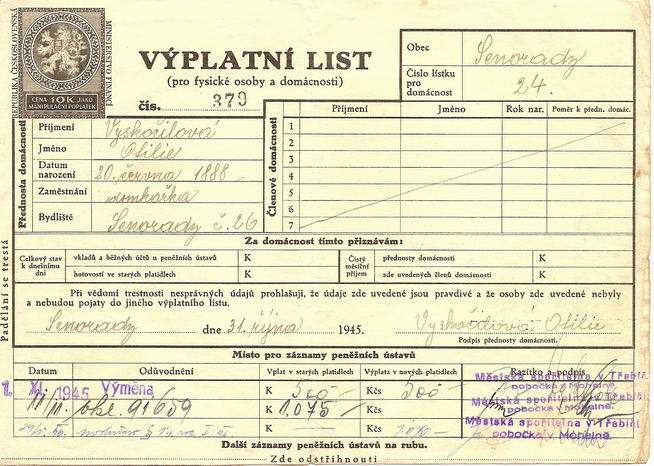 REPUBLIKA ČESKOSLOVENSKÁ
MINISTERSTVO FINANCÍ
CENA 10K JAKO
MANIPULAČNÍ POPLATEK
VÝPLATNÍ LIST
(pro fysické osoby a domácnosti)
čís. 379
Obec Senorady
Číslo lístku pro domácnost 24.
Přednosta domácnosti
Příjmení Vyskočilová
Jméno Otilie
Datum narození 20. června 1888
Zaměstnání domkařka
Bydliště Senorady č. 26
Členové domácnosti
Příjmení Jméno Rok nar. Poměr k předn. domác.
1
2
3
4
5
6
7
Za domácnost tímto přiznávám:
Celkový stav k dnešnímu dni
vkladů a běžných účtů u peněžních ústavů K
hotovostí ve starých platidlech K
Čistý měsíční příjem
přednosty domácnosti K
zde uvedených členů domácnosti K
Padělání se trestá
Při vědomí trestnosti nesprávných údajů prohlašuji, že údaje zde uvedené jsou pravdivé a že osoby zde uvedené nebyly
a nebudou pojaty do jiného výplatního listu.
Senorady dne 31. října 1945. Vyskočilová Otilie
Podpis přednosty domácnosti.
Místo pro záznamy peněžních ústavů
Datum Odůvodnění Vplat v starých platidlech Výplata v nových platidl. Razítko a podpis
1. XI. 1945 Výměna K 500 — Kčs 500 —
91659 K 1.075 — Kčs
K Kčs
Městská spořitelna v Třebíči
pobočka v Mohelně.
Městská spořitelna v Třebíči
pobočka v Mohelně.
Městská spořitelna v Třebíči
pobočka v Mohelně.
Další záznamy peněžních ústavů na rubu.
Zde odstřihnouti